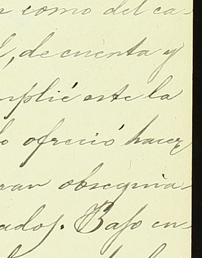 como del ca-
, de cuenta y
mplió este la
o ofreció hacer
ran obsequia
ados. Bajo en-